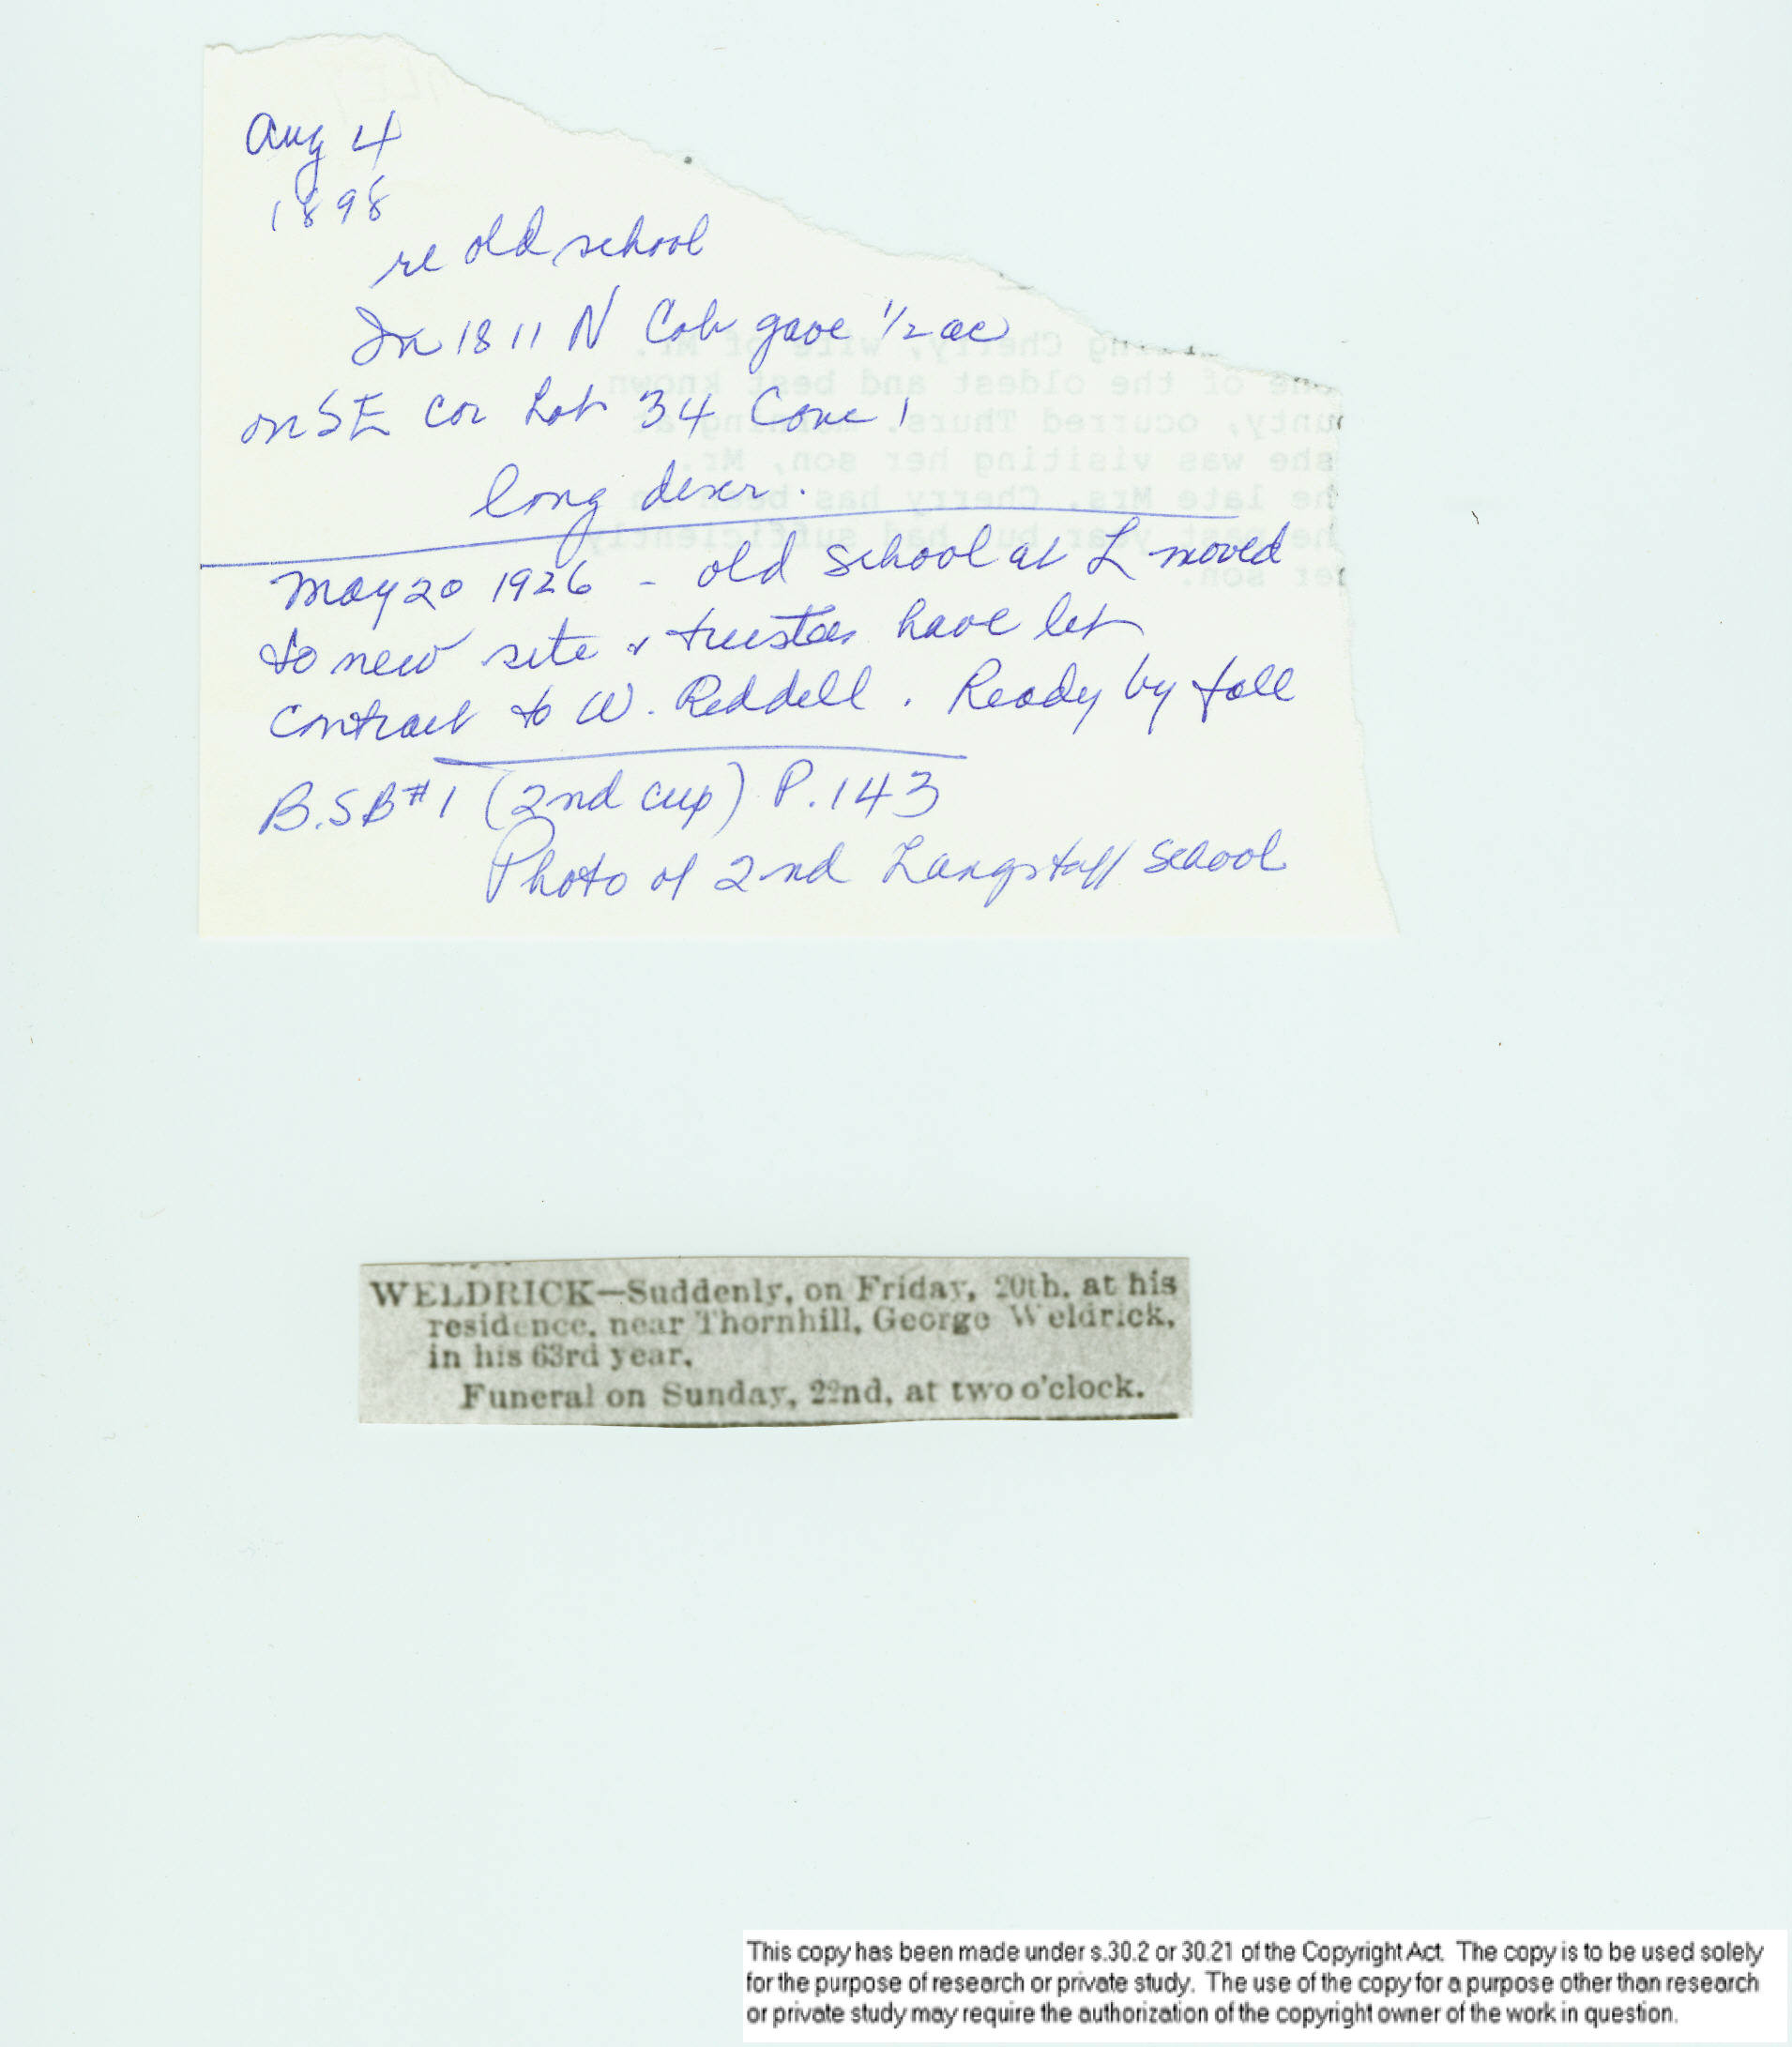 Aug 4
1898
re old school
In 1811 N Cob gave 1/2 ac
on SE cor Lot 34 Conc 1
long descr.
May 20 1926 - old school at L moved
to new site & trustees have let
contract to W. Reddell. Ready by fall
B.SB#1 (2nd cup) P.143
Photo of 2nd Langstaff School
WELDRICK—Suddenly, on Friday, 20th, at his
residence, near Thornhill, George Weldrick,
in his 63rd year.
Funeral on Sunday, 22nd, at two o'clock.
This copy has been made under s.30.2 or 30.21 of the Copyright Act. The copy is to be used solely
for the purpose of research or private study. The use of the copy for a purpose other than research
or private study may require the authorization of the copyright owner of the work in question.